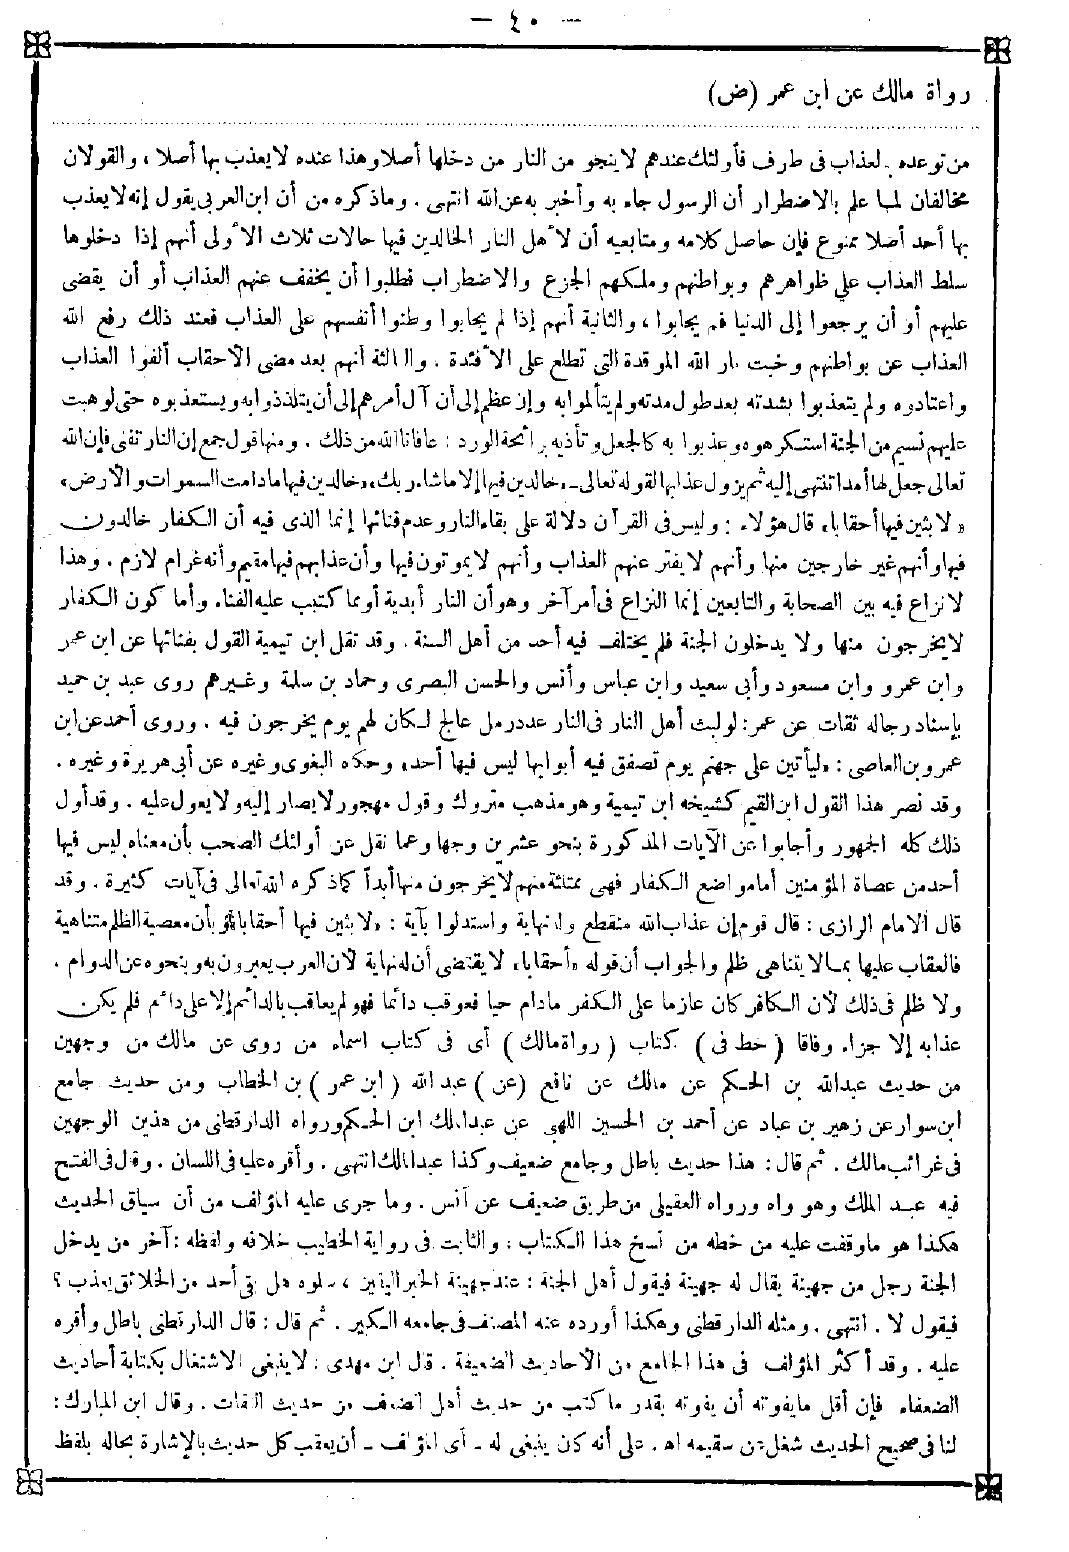 — ٤٠ —
رواة مالك عن ابن عمر (ض)
من توعده بالعذاب فى طرف فأولئك عندهم لا ينجو من النار من دخلها أصلا وهذا عنده لا يعذب بها أصلا ، والقولان
مخالفان لما علم بالاضطرار أن الرسول جاء به وأخبر به عن الله انتهى . وما ذكره من أن ابن العربى يقول إنه لا يعذب
بها أحد أصلا ممنوع فإن حاصل كلامه ومتابعيه أن لأهل النار الخالدين فيها حالات ثلاث الأولى أنهم إذا دخلوها
سلط العذاب على ظواهرهم وبواطنهم وملكهم الجزع والاضطراب فطلبوا أن يخفف عنهم العذاب أو أن يقضى
عليهم أو أن يرجعوا إلى الدنيا فلم يجابوا ، والثانية أنهم إذا لم يجابوا وطنوا أنفسهم على العذاب فعند ذلك رفع الله
العذاب عن بواطنهم وخبت نار الله الموقدة التى تطلع على الأفئدة . والثالثة أنهم بعد مضى الأحقاب ألفوا العذاب
واعتادوه ولم يتعذبوا بشدته بعد طول مدته ولم يتألموا به وإن عظم إلى أن آل أمرهم إلى أن يتلذذوا به ويستعذبوه حتى لو هبت
عليهم نسيم من الجنة استكرهوه وعذبوا به كالجعل وتأذيه برائحة الورد : عافانا الله من ذلك . ومنها قول جمع إن النار تفنى فإن الله
تعالى جعل لها أمدا تنتهى إليه ثم يزول عذابها لقوله تعالى ـ «خالدين فيها إلا ما شاء ربك» «خالدين فيها ما دامت السموات والأرض»
«لابثين فيها أحقابا» قال هؤلاء : وليس فى القرآن دلالة على بقاء النار وعدم فنائها إنما الذى فيه أن الكفار خالدون
فيها وأنهم غير خارجين منها وأنهم لا يفتر عنهم العذاب وأنهم لا يموتون فيها وأن عذابهم فيها مقيم وأنه غرام لازم . وهذا
لا نزاع فيه بين الصحابة والتابعين إنما النزاع فى أمر آخر وهو أن النار أبدية أو مما كتب عليه الفناء وأما كون الكفار
لا يخرجون منها ولا يدخلون الجنة فلم يختلف فيه أحد من أهل السنة . وقد نقل ابن تيمية القول بفنائها عن ابن عمر
وابن عمرو وابن مسعود وأبى سعيد وابن عباس وأنس والحسن البصرى وحماد بن سلمة وغيرهم روى عبد بن حميد
بإسناد رجاله ثقات عن عمر : لو لبث أهل النار فى النار عدد رمل عالج لكان لهم يوم يخرجون فيه . وروى أحمد عن ابن
عمرو بن العاصى : «ليأتين على جهنم يوم تصفق فيه أبوابها ليس فيها أحد» وحكاه البغوى وغيره عن أبى هريرة وغيره .
وقد نصر هذا القول ابن القيم كشيخه ابن تيمية وهو مذهب متروك وقول مهجور لا يصار إليه ولا يعول عليه . وقد أول
ذلك كله الجمهور وأجابوا عن الآيات المذكورة بنحو عشرين وجها وعما نقل عن أولئك الصحب بأن معناه ليس فيها
أحد من عصاة المؤمنين أما مواضع الكفار فهى ممتلئة منهم لا يخرجون منها أبداً كما ذكره الله تعالى فى آيات كثيرة . وقد
قال الامام الرازى : قال قوم إن عذاب الله منقطع وله نهاية واستدلوا بآية : «لابثين فيها أحقابا» وبأن معصية الظلم متناهية
فالعقاب عليها بما لا يتناهى ظلم والجواب أن قوله «أحقابا» لا يقتضى أن له نهاية لأن العرب يعبرون به وبنحوه عن الدوام .
ولا ظلم فى ذلك لأن الكافر كان عازما على الكفر مادام حيا فعوقب دائما فهو لم يعاقب بالدائم إلا على دائم فلم يكن
عذابه إلا جزاء وفاقا (خط فى) كتاب (رواة مالك) أى فى كتاب اسماء من روى عن مالك من وجهين
من حديث عبدالله بن الحكم عن مالك عن نافع (عن) عبد الله (ابن عمر) بن الخطاب ومن حديث جامع
ابن سوار عن زهير بن عباد عن أحمد بن الحسين اللهبى عن عبدالملك ابن الحكم ورواه الدارقطنى من هذين الوجهين
فى غرائب مالك . ثم قال : هذا حديث باطل وجامع ضعيف وكذا عبد الملك انتهى . وأقره عليه فى اللسان . وقال فى الفتح
فيه عبد الملك وهو واه ورواه العقيلى من طريق ضعيف عن أنس . وما جرى عليه المؤلف من أن سياق الحديث
هكذا هو ما وقفت عليه من خطه من نسخ هذا الكتاب ، والثابت فى رواية الخطيب خلافه ولفظه : آخر من يدخل
الجنة رجل من جهينة يقال له جهينة فيقول أهل الجنة : عند جهينة الخبر اليقين ، سلوه هل بقى أحد من الخلائق يعذب ؟
فيقول لا . انتهى . ومثله الدارقطنى وهكذا أورده عنه المصنف فى جامعه الكبير . ثم قال : قال الدارقطنى باطل وأقره
عليه . وقد أكثر المؤلف فى هذا الجامع من الأحاديث الضعيفة . قال ابن مهدى : لا ينبغى الاشتغال بكتابة أحاديث
الضعفاء فإن أقل ما يفوته أن يفوته بقدر ما كتب من حديث أهل الضعف من حديث الثقات . وقال ابن المبارك :
لنا فى صحيح الحديث شغل عن سقيمه اهـ . على أنه كان ينبغى له ـ أى المؤلف ـ أن يعقب كل حديث بالإشارة بحاله بلفظ